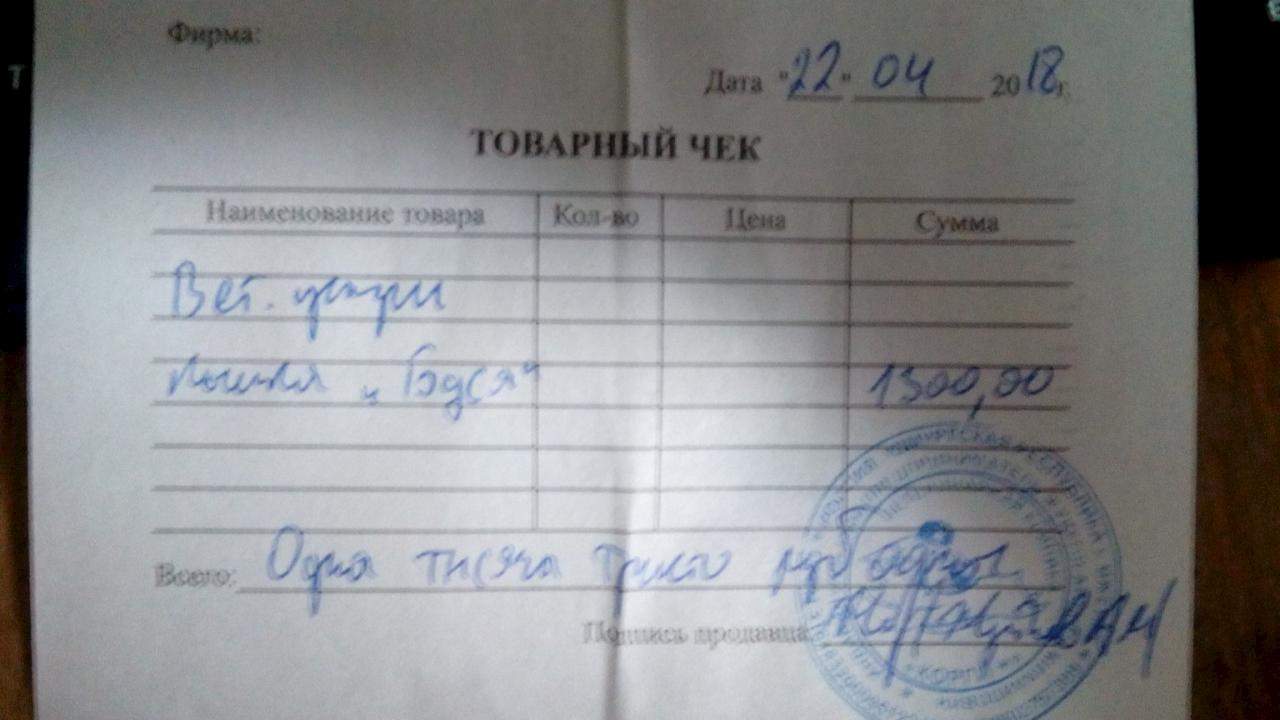 Фирма:
Дата "22" 04 2018г.
ТОВАРНЫЙ ЧЕК
Наименование товара Кол-во Цена Сумма
Вет. услуги
кошка "Бэдся" 1300,00
Всего: Одна тисяча триста руб
Подпись продавца: